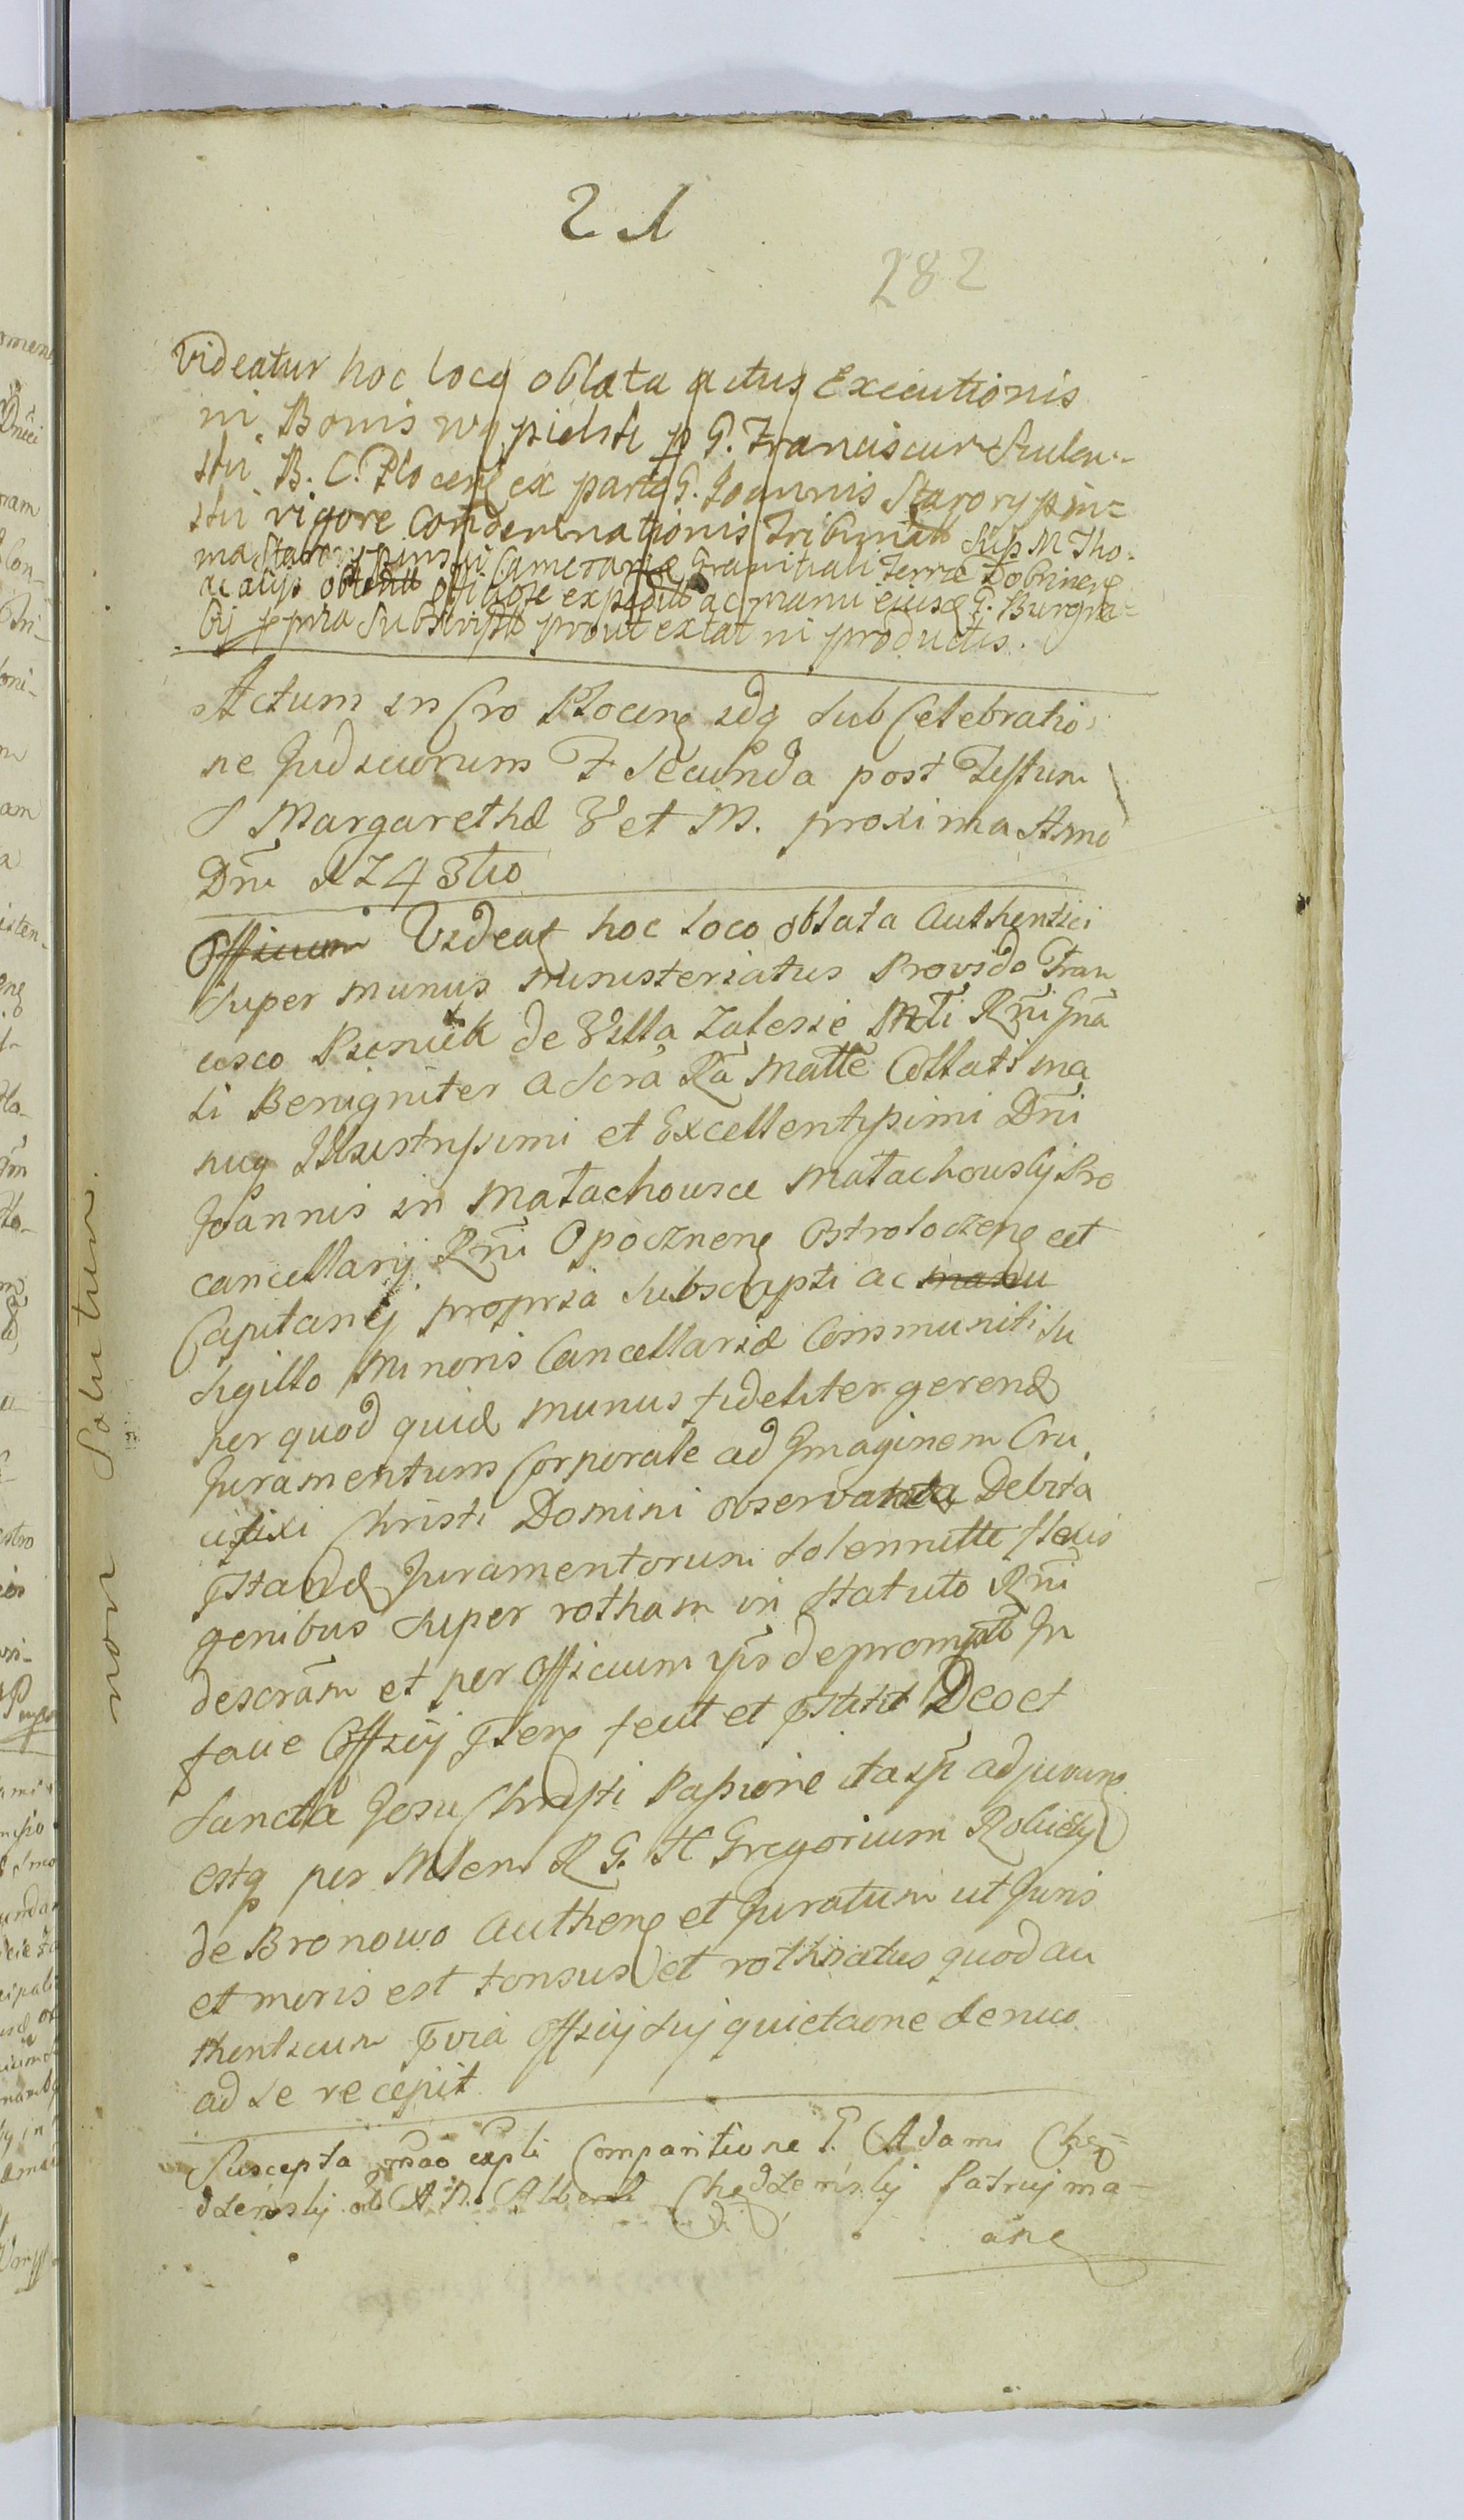 21
282
Videatur hoc loco oblata actus Executionis
in Bonis p G. Franciscum
ski B. C. Plocens ex parte G. Joannis Starorypin=
ski vigore Condemnationis Tribunalit sup M Tho=
ma Starorypinski Camerario Granitiali Terræ Dobrinens
ac alijs obtent officiose expedit ac manu eiusd G. Burgra=
bij ppria Subscript prout extat in productis.
Actum in Cro Plocens idq sub Celebratio
ne Judiciorum F Secunda post Festum
S Margarethæ V et M. proxima Anno
Dni 1743tio
Officium Videat hoc loco oblata Authentici
super munus ministeriatus Provido Fran
cisco de Villa Zalesie Mti Rni Gna
li Benigniter a Scra Ra Matte Collati ma
nuq Illustrissimi et Excellentissimi Dni
Joannis in Matachowice Matachowskij Pro
cancellarij Rni Opocznens Ostrołoczens ect
Capitanej propria subscripti ac manu
sigillo Minoris Cancellariæ Communiti su
per quod quid munus fideliter gerend
Juramentum Corporale ad Imaginem Cru
cifixi Christi Domini observata Debita
pstand Juramentorum solennitte flexis
genibus super rotham in statuto Rni
descram et per officium ips deprompt In
facie Officij pters fecit et pstitit Deo et
Sancta Jesu Christi Passione itasp adjuvan
estq per Mlem R G. H Gregorium
de Bronowo Authens et Juratum ut Juris
et moris est tonsus et rothisatus quod au
thenticum pvia officij sui quietaone denuo
ad se recepit
Suscepta Comparitione G. Adami Chę=
dzenskij ab A. R. Alberti Chędzenskij Patruj ma=
ane
non Solutum.